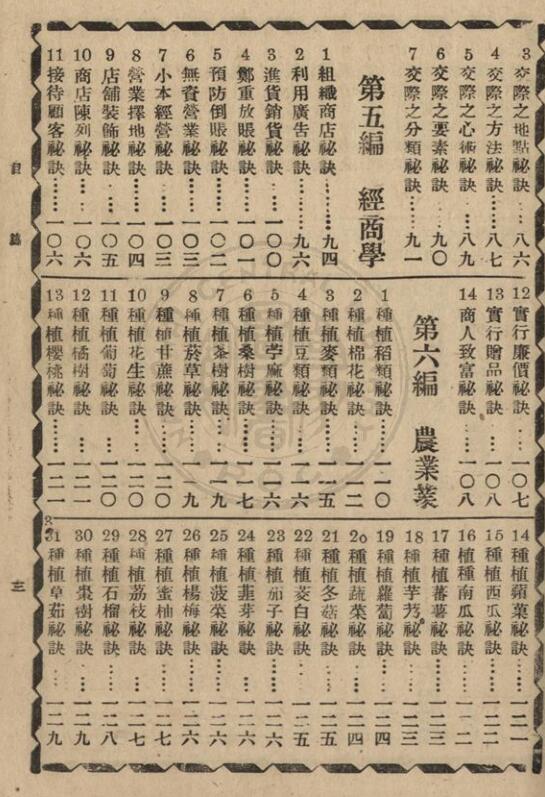 3 交際之地點祕訣……八六
4 交際之方法祕訣……八七
5 交際之心術祕訣……八九
6 交際之要素祕訣……九〇
7 交際之分類祕訣……九一
第五編 經商學
1 組織商店祕訣……九四
2 利用廣告祕訣……九六
3 進貨銷貨祕訣……一〇〇
4 鄭重放賬祕訣……一〇一
5 預防倒賬祕訣……一〇二
6 無資營業祕訣……一〇三
7 小本經營祕訣……一〇三
8 營業擇地祕訣……一〇四
9 店舖裝飾祕訣……一〇五
10 商店陳列祕訣……一〇六
11 接待顧客祕訣……一〇六
12 實行廉價祕訣……一〇七
13 實行贈品祕訣……一〇八
14 商人致富祕訣……一〇八
第六編 農業業
1 種植稻類祕訣……一一〇
2 種植棉花祕訣……一一二
3 種植麥類祕訣……一一五
4 種植豆類祕訣……一一六
5 種植苧麻祕訣……一一六
6 種植桑樹祕訣……一一七
7 種植茶樹祕訣……一一九
8 種植菸草祕訣……一一九
9 種植甘蔗祕訣……一二〇
10 種植花生祕訣……一二〇
11 種植葡萄祕訣……一二〇
12 種植橘樹祕訣……一二一
13 種植櫻桃祕訣……一二一
14 種植蘋菓祕訣……一二一
15 種植西瓜祕訣……一二二
16 植種南瓜祕訣……一二二
17 種植蕃薯祕訣……一二三
18 種植芋艿祕訣……一二三
19 種植蘿蔔祕訣……一二四
20 種植蔬菜祕訣……一二四
21 種植冬菇祕訣……一二五
22 種植茭白祕訣……一二五
23 種植茄子祕訣……一二六
24 種植韮芽祕訣……一二六
25 種植菠菜祕訣……一二六
26 種植楊梅祕訣……一二六
27 種植蜜柚祕訣……一二七
28 種植荔枝祕訣……一二七
29 種植石榴祕訣……一二八
30 種植棗樹祕訣……一二九
31 種植草茹祕訣……一二九
目 錄
三